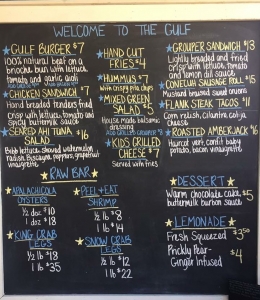 WELCOME TO THE GULF
GULF BURGER $7
100% natural beef on a
brioche bun with lettuce,
tomato and garlic aioli
CHICKEN SANDWICH $7
Hand breaded tenders fried
crisp with lettuce, tomato and
spicy buttermilk sauce
SEARED AHI TUNA $16
SALAD
Bibb lettuce, shaved watermelon
radish, grapefruit
vinaigrette
HAND CUT
FRIES $4
HUMMUS $7
with crispy pita chips
MIXED GREEN $5
SALAD
House made balsamic
dressing
KIDS GRILLED
CHEESE $7
Served with fries
GROUPER SANDWICH $13
Lightly breaded and fried
crisp with lettuce, tomato
and lemon dill sauce
CONECUH SAUSAGE ROLL $15
Mustard braised sweet onions
FLANK STEAK TACOS $11
Corn relish, cilantro, cotija
cheese
ROASTED AMBERJACK $16
Haricot vert, confit baby
potato, bacon vinaigrette
RAW BAR
APALACHICOLA
OYSTERS
1/2 doz $10
1 doz $18
KING CRAB
LEGS
1/2 lb $18
1 lb $35
PEEL + EAT
SHRIMP
1/2 lb $8
1 lb $14
SNOW CRAB
LEGS
1/2 lb $12
1 lb $22
DESSERT
Warm chocolate cake, $5
buttermilk bourbon sauce
LEMONADE
Fresh Squeezed $3.50
Prickly Pear- $4
Ginger Infused